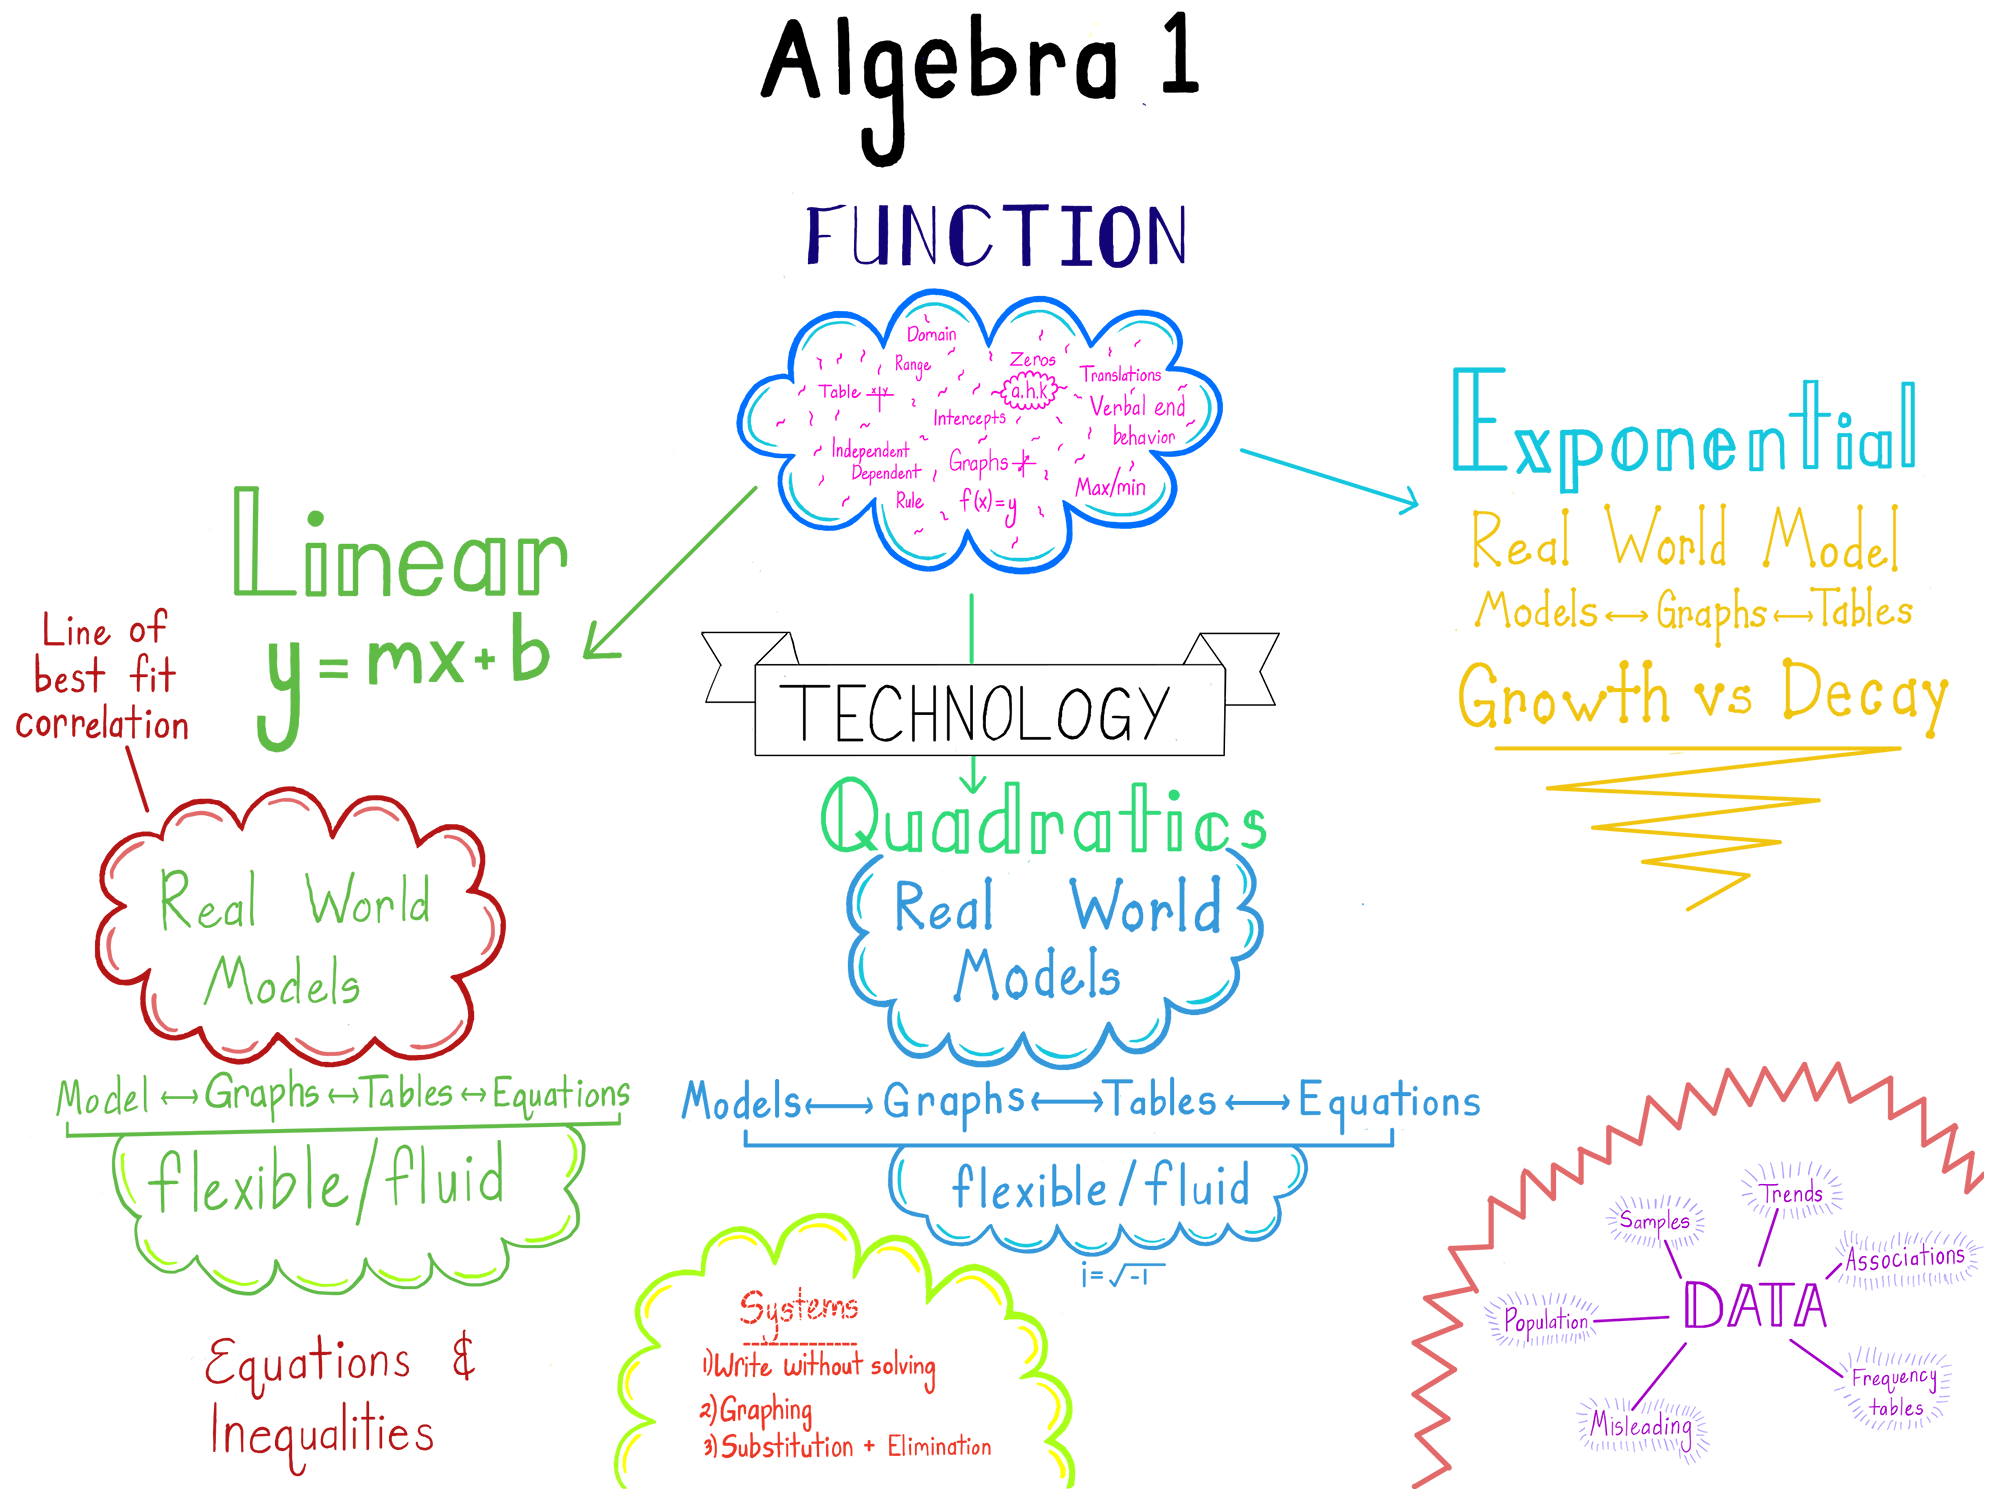 Algebra 1
FUNCTION
Domain
Range
Zeros
Table x y
a.h.k
Translations
Intercepts
Verbal end
behavior
Independent
Dependent
Graphs
Max/min
Rule
f(x)=y
Linear
y=mx+b
Line of
best fit
correlation
Real World
Models
Model ↔ Graphs ↔ Tables ↔ Equations
flexible/fluid
Equations &
Inequalities
TECHNOLOGY
Quadratics
Real World
Models
Models ↔ Graphs ↔ Tables ↔ Equations
flexible/fluid
i=√-1
Systems
1) Write without solving
2) Graphing
3) Substitution + Elimination
Exponential
Real World Model
Models ↔ Graphs ↔ Tables
Growth vs Decay
DATA
Trends
Samples
Associations
Population
Frequency
tables
Misleading